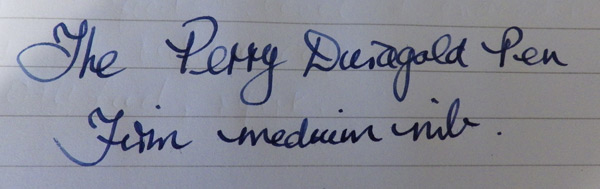 The Perry Duragold Pen
Firm medium nib.